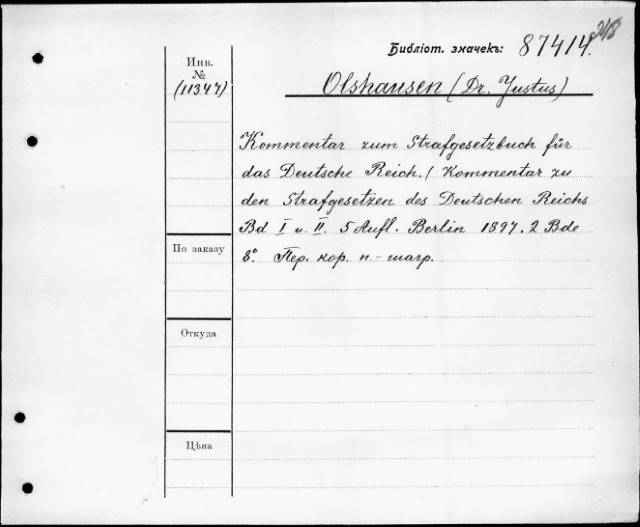 248
Библіот. значекъ: 87414.
Инв.
№
(11347)
Olshausen (Dr. Justus)
Kommentar zum Strafgesetzbuch für
das Deutsche Reich./ Kommentar zu
den Strafgesetzen des Deutschen Reichs
Bd I u. II. 5 Aufl. Berlin 1897. 2 Bde
8°. Пер. кор. п.-шагр.
По заказу
Откуда
Цѣна